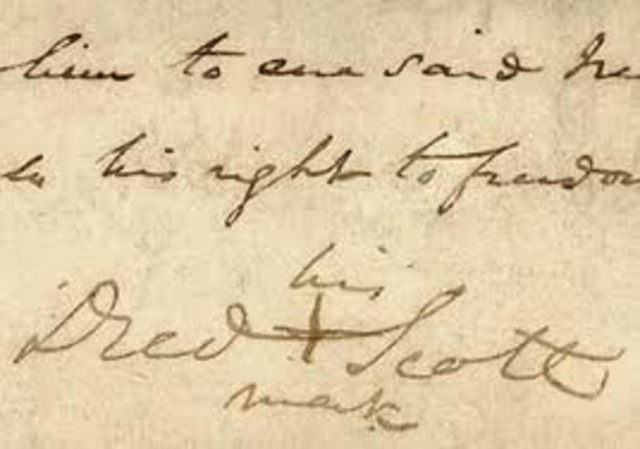 him to sue said
his right to freedom
his
Dred + Scott
mark